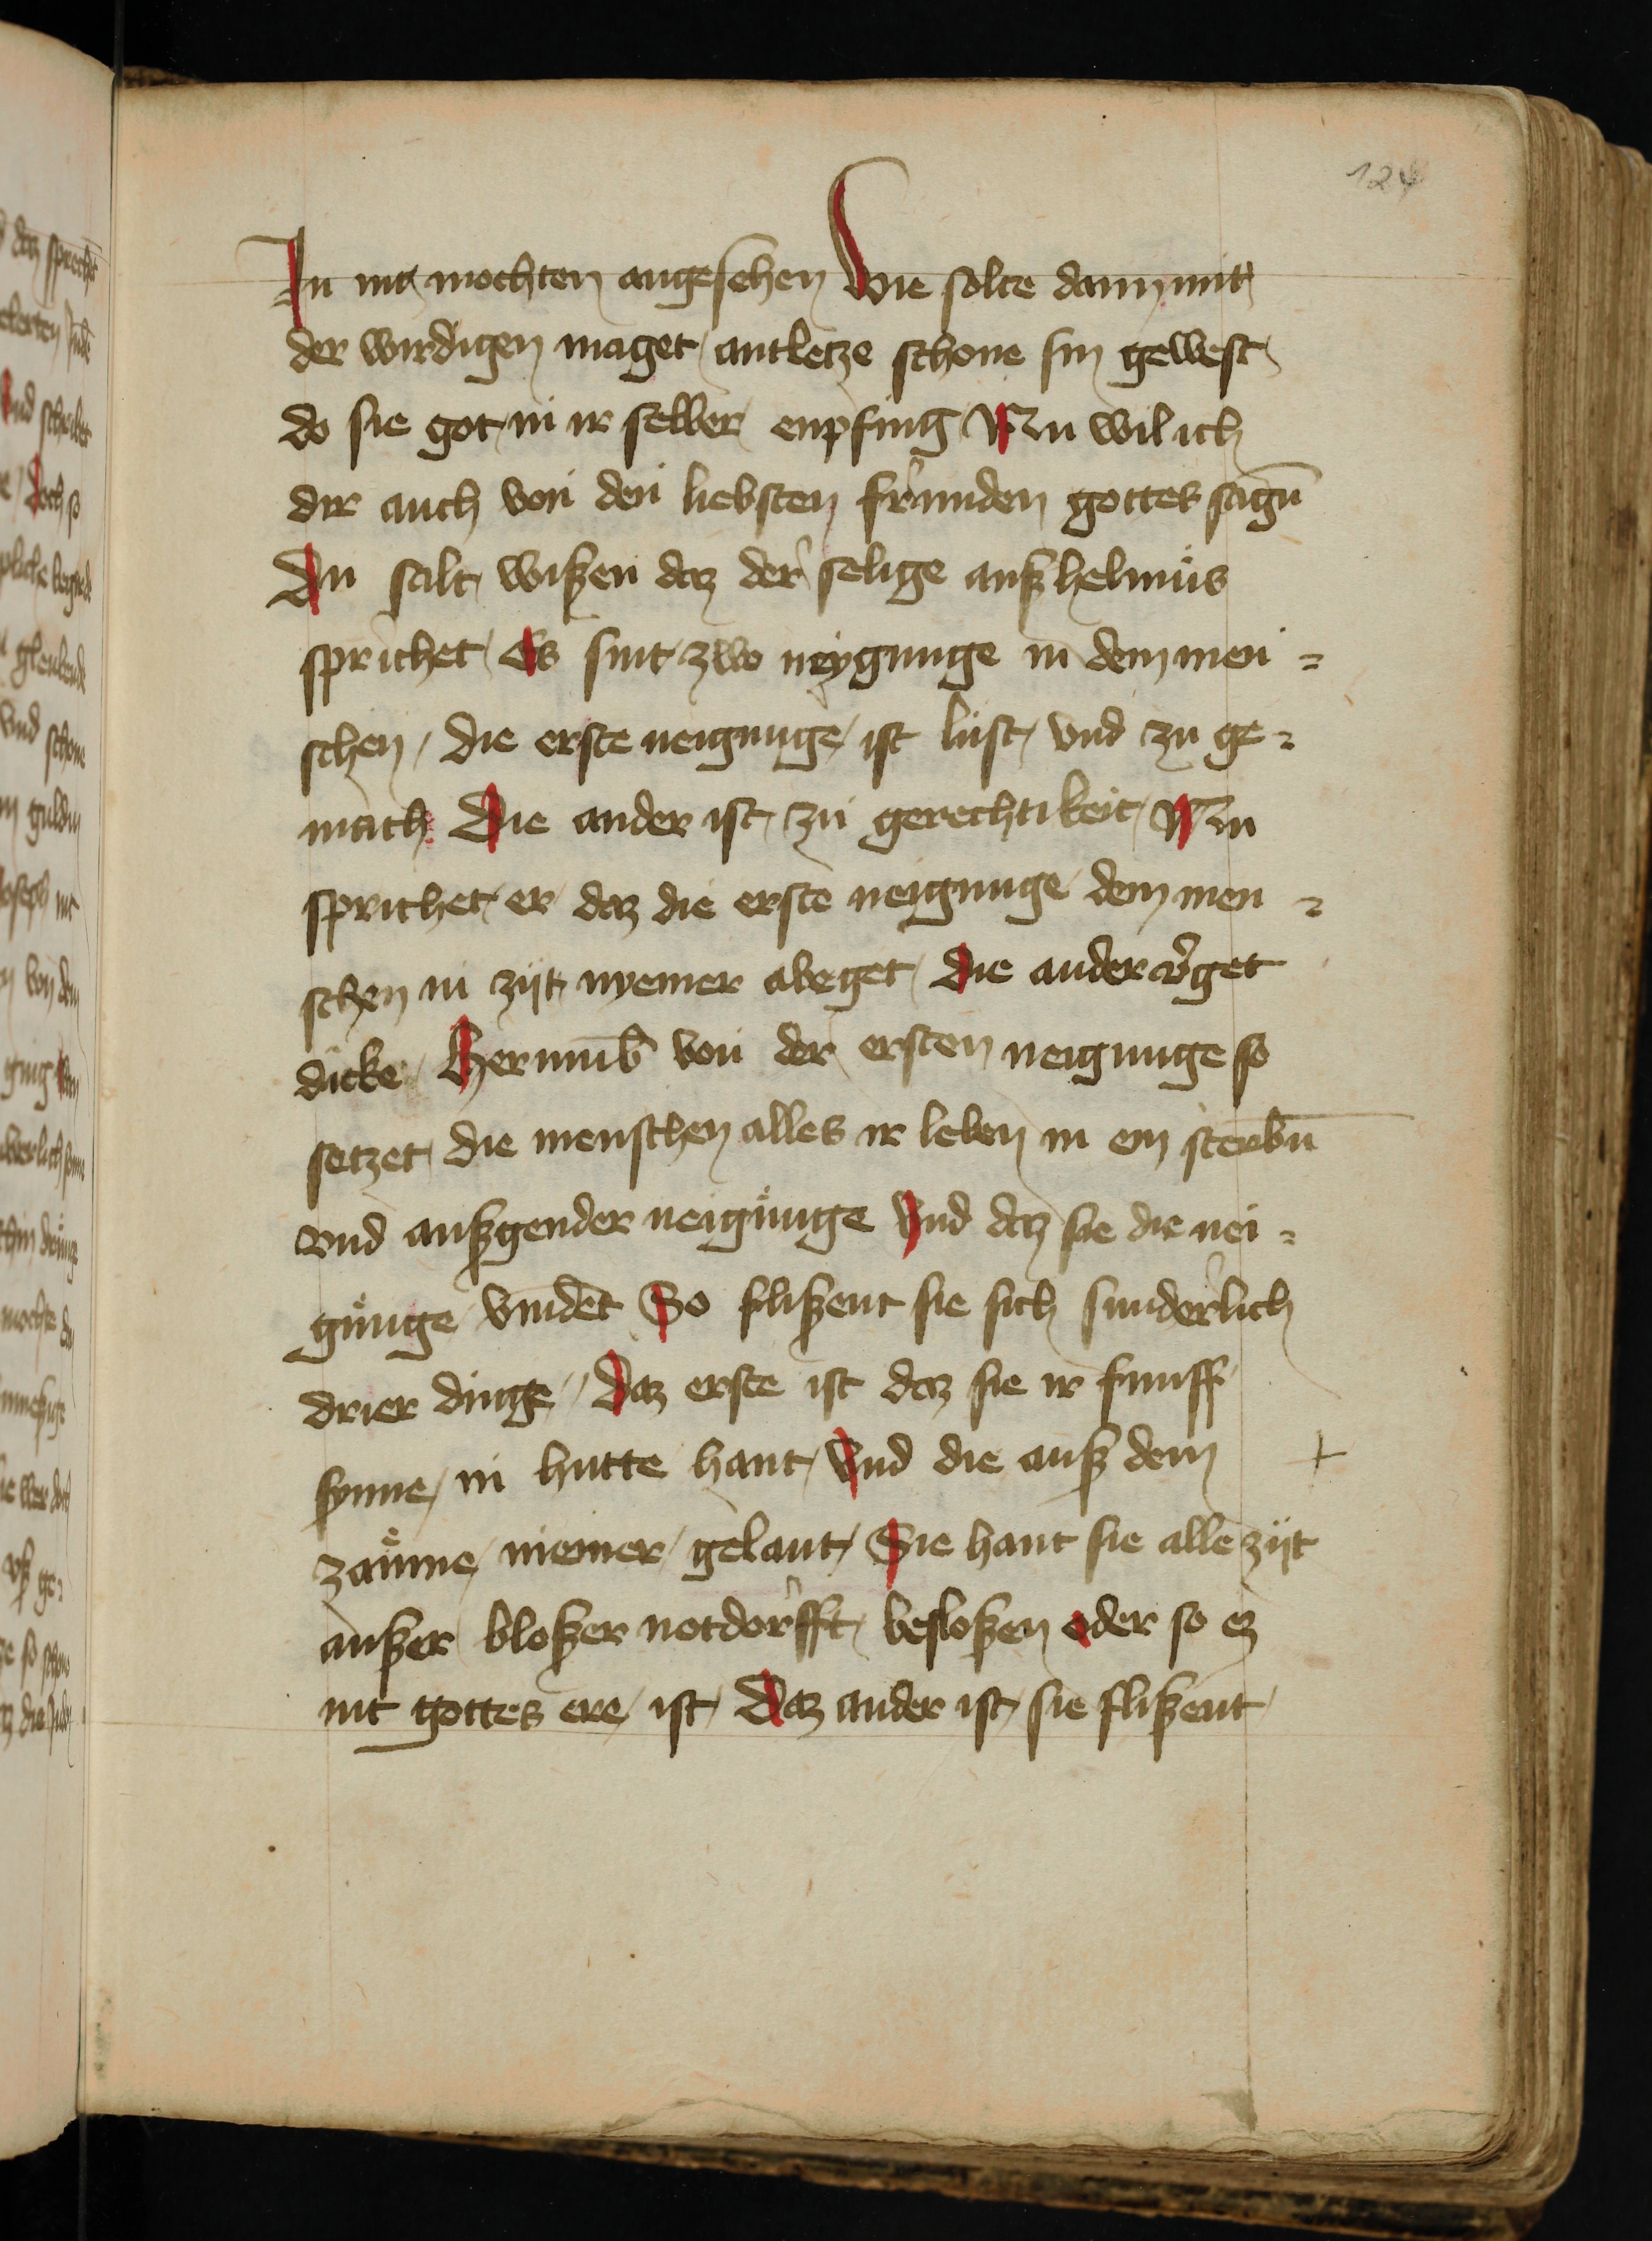 124
In nit mochten angesehen Wie solte dann mit
der wirdigen maget antletze schone sin gewest
do sie got in ir selber enpfing Nu wil ich
dir auch von den liebsten frunden gottes sagn̄
Du salt wißen daz der selige anßhelmus
sprichet Es sint zwo neygunge in dem men =
schen / die erste neigunge / ist lust / vnd zu ge =
mach Die ander ist zu gerechtikeit / Nu
sprichet er daz die erste neigunge dem men =
schen in zijt nyemer abeget / die ander v̉get
dicke / Her vmb von der ersten neigunge so
setzet die menschen alles ir leben in ein sterbn̄
vnd außgender neigunge Vnd daz sie die nei =
gunge vindēt So flißent sie sich sunderlich
drier dinge / Daz erste ist daz sie ir funff
synne / in hutte hant / Vnd die auß dem
zaume / niemer / gelant / Sie hant sie alle zijt
außer bloßer notdorfft / besloßen oder so ez
nit gottes ere / ist / Daz ander ist / sie flißent